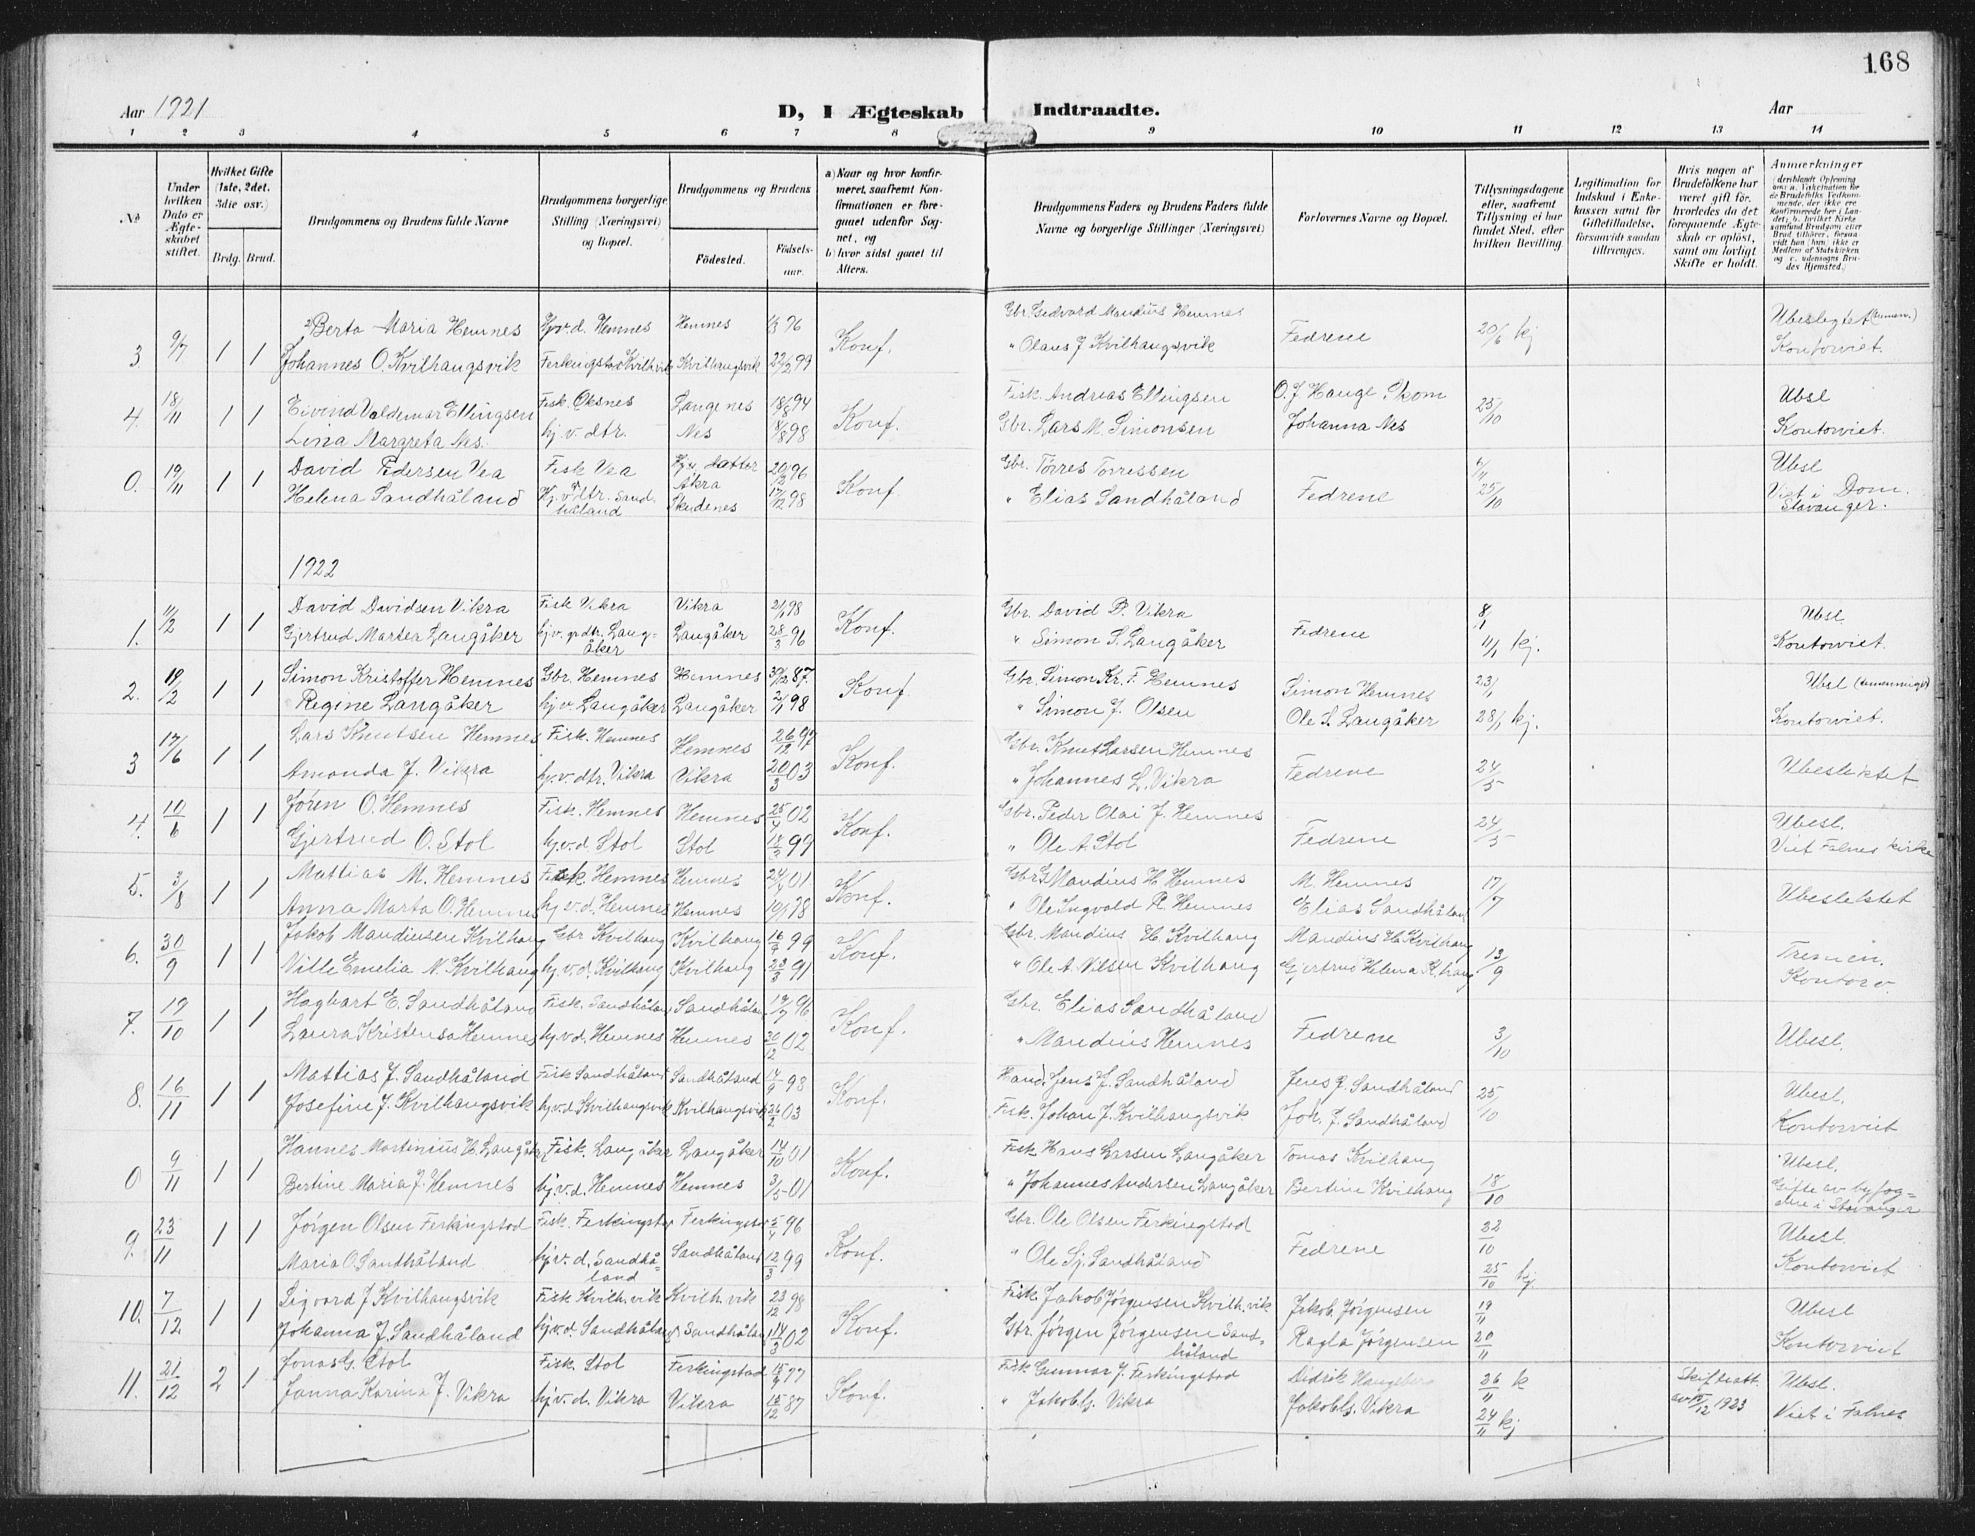 168
Aar 1921 D, I Ægteskab Indtraadte. Aar
1 2 3 4 5 6 7 8 9 10 11 12 13 14
No
Under hvilken Dato er Ægteskabet stiftet.
Hvilket Gifte (1ste, 2det. 3die osv.)
Brdg. Brud.
Brudgommens og Brudens fulde Navne
Brudgommens borgerlige Stilling (Næringsvei) og Bopæl.
Brudgommens og Brudens
Fødested. Fødselsaar.
a) Naar og hvor konfirmeret, saafremt Konfirmationen er foregaaet udenfor Sognet, og
b) hvor sidst gaaet til Alters.
Brudgommens Faders og Brudens Faders fulde Navne og borgerlige Stillinger (Næringsvei)
Forlovernes Navne og Bopæl.
Tillysningsdagene eller, saafremt Tillysning ei har fundet Sted, efter hvilken Bevilling.
Legitimation for Indskud i Enkekassen samt for Giftetilladelse, forsaavidt saadan tiltrænges.
Hvis nogen af Brudefolkene har været gift før, hvorledes da det foregaaende Ægteskab er opløst, samt om lovligt Skifte er holdt.
Anmerkninger
Berta Maria Hemnes Hjvd. Hemnes Hemnes 1/3 96 Gbr. Gedvard Mandius Hemnes Ubeslegtet
3 9/7 1 1 Johannes O. Kvilhaugsvik Kvilhaugsvik 22/2 99 Konf. " Olaus J Kvilhaugsvik Fedrene 20/6 kj Kontorviet.
4. 18/11 1 1 Eivind Valdemar Ellingsen Fisk. Øksnes Langenes 18/8 94 Konf. Fisk. Andreas Ellingsen O. J. Hauge Skom 25/10 Ubsl
Lina Margreta Nes. hj. v. dtr. Nes 18/8 98 Gbr. Lars M. Simonsen Johanna Nes Kontorviet.
0. 19/11 1 1 David Pedersen Vea Fisk Vea Åkra 20/2 96 Konf. Gbr. Torres Torressen Ubsl
Helena Sandhåland Hj. v. dtr. Sandhåland Skudenes 17/12 98 " Elias Sandhåland Fedrene 25/10 Viet i Dom. Stavanger.
1922
1. 11/2 1 1 David Davidsen Vikra Fisk Vikra Vikra 21/1 98 Konf. Gbr. David P. Vikra Fedrene 8/1 Ubsl.
Gjertrud Marter Langåker hj. v. grdtr. Langåker Langåker 28/3 96 " Simon S. Langåker 11/1 kj. Kontorviet.
2. 19/2 1 1 Simon Kristoffer Hemnes Gbr. Hemnes Hemnes 30/12 87 Konf. Gbr. Simon Kr. F. Hemnes Simon Hemnes 23/1 Ubsl
Regine Langåker hj v. Langåker Langåker 2/11 98 " Simon J. Olsen Ole S. Langåker 28/1 kj. Kontorviet.
3 17/6 1 1 Lars Knutsen Hemnes Fisk. Hemnes Hemnes 26/12 97 Konf. Gbr. Knut Larsen Hemnes Fedrene 24/5 Ubeslektet
Amanda J. Vikra hj. v. dtr. Vikra Vikra 20/3 03 " Johannes L. Vikra
4. 10/6 1 1 Jøren O. Hemnes Fisk. Hemnes Hemnes 25/4 02 Konf. Gbr. Peder Olai J. Hemnes 24/5 Ubesl.
Gjertrud O. Stol hj. v. d. Stol Stol 18/3 99 " Ole A. Stol Fedrene Viet Falnes kirke
5. 3/8 1 1 Mattias M. Hemnes Fisk. Hemnes Hemnes 24/4 01 Konf. Gbr. Mandius H. Hemnes M. Hemnes 17/7 Ubeslektet
Anna Marta O. Hemnes hj. v. d. Hemnes Hemnes " Ole Ingvald R. Hemnes Elias Sandhåland
6. 30/9 1 1 Jakob Mandiusen Kvilhaug Gbr Kvilhaug Kvilhaug 16/9 99 Konf. Gbr. Mandius H. Kvilhaug Mandius H. Kvilhaug 13/9 Tremen.
Ville Emelia N. Kvilhaug hj. v. d. Kvilhaug Kvilhaug 23/3 91 " Ole A. Nilsen Kvilhaug Gjertrud Helena K.haug Kontorv.
7. 19/10 1 1 Hagbart E. Sandhåland Fisk. Sandhåland Sandhåland 19/7 96 Konf. Gbr. Elias Sandhåland Fedrene 3/10 Ubesl.
Laura Kristensa Hemnes hj. v d. Hemnes Hemnes 30/12 02 " Mandius Hemnes
8. 16/11 1 1 Mattias J. Sandhåland Fisk Sandhåland Sandhåland 17/9 98 Konf. Hand. Jens J. Sandhåland Jens J. Sandhåland 25/10 Ubesl.
Josefine J. Kvilhaugsvik hj. v. d. Kvilhaugsvik Kvilhaugsvik 26/2 03 Fisk. Johan J. Kvilhaugsvik Joh. J. Sandhåland Kontorviet
0 9/11 1 1 Hannes Martinius H. Langåker Fisk. Langåker Langåker 14/10 01 Konf. Fisk. Hans Larsen Langåker Tomas Kvilhaug 18/10 Ubesl.
Bertine Maria J. Hemnes hj. v. d. Hemnes Hemnes 3/5 01 " Johannes Andersen Langåker Bertine Kvilhaug Gifte av byfogdne i Stavanger
9. 23/11 1 1 Jørgen Olsen Ferkingstad Fisk. Ferkingstad Ferkingstad 5/4 96 Konf. Gbr. Ole Olsen Ferkingstad Fedrene Ubesl.
Maria O. Sandhåland hj. v. d. Sandhåland Sandhåland 12/3 99 " Ole Sj. Sandhåland 25/10 kj. Kontorviet
10. 7/12 1 1 Sigvard J Kvilhaugsvik Fisk Kvilh. vik Kvilh. vik 23/12 98 Konf. Fisk. Jakob Jørgensen Kvilh. vik Jakob Jørgensen 19/11 Ubesl
Johanna J. Sandhåland hj. v. d. Sandhåland Sandhåland 14/3 02 Gbr. Jørgen Jørgensen Sandhåland Ragla Jørgensen 20/11 Kontorviet
11. 21/12 2 1 Jonas G. Stol Fisk. Stol Ferkingstad Konf. Fisk. Gunnar J. Ferkingstad Didrik 26/11 k Skifteatt. av 15/12 1923 Ubsl.
Janna Karina J. Vikra hj. v. d. Vikra Vikra 15/12 87 " Jakob G. Vikra Jakob G. Vikra 24/11 kj Viet i Falnes